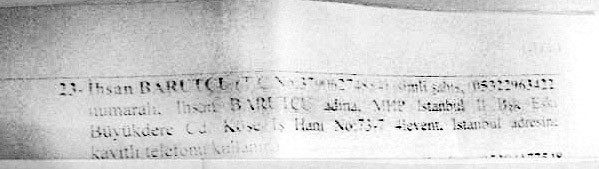 23- İhsan BARUTÇU (T.C. No: isimli şahıs, 05322963422
numaralı, İhsan BARUTÇU adına, MHP İstanbul İl Bşk. Eski
Büyükdere Cd. Köse İş Hanı No:73-7 4levent, İstanbul adresine
kayıtlı telefonu